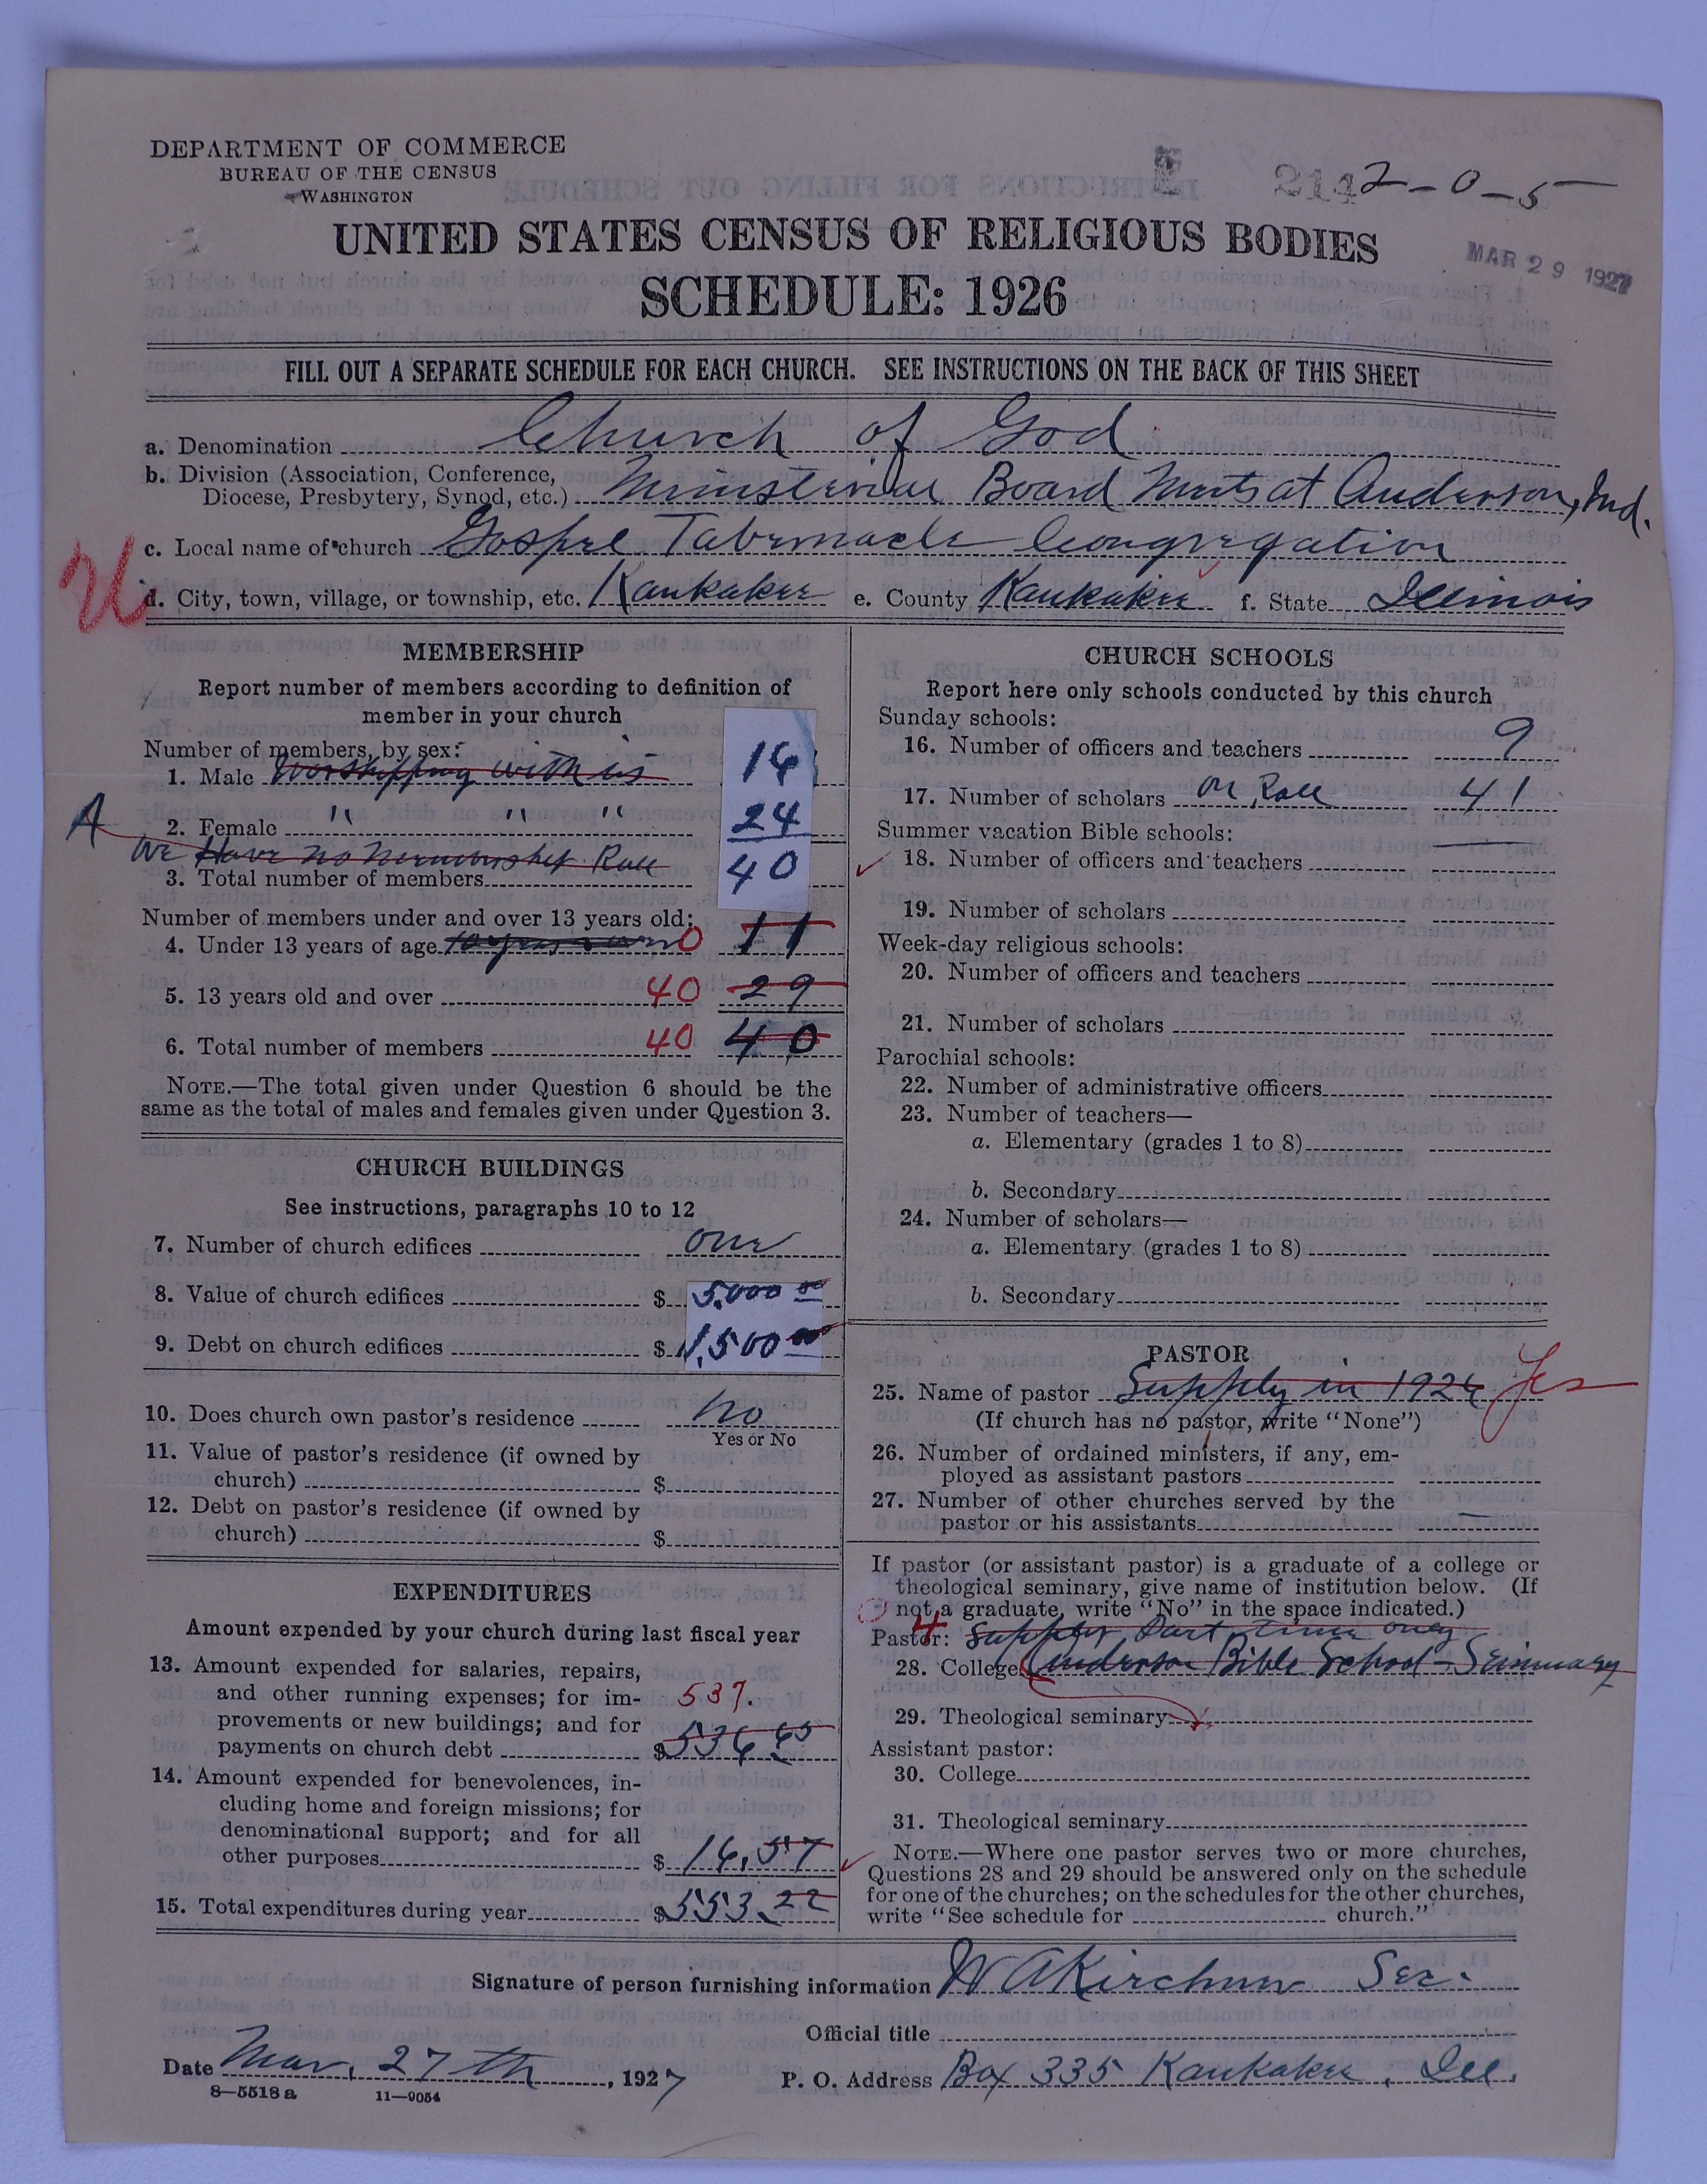 DEPARTMENT OF COMMERCE
BUREAU OF THE CENSUS
WASHINGTON
2142-0-5
UNITED STATES CENSUS OF RELIGIOUS BODIES
MAR 29 1927
SCHEDULE: 1926
FILL OUT A SEPARATE SCHEDULE FOR EACH CHURCH. SEE INSTRUCTIONS ON THE BACK OF THIS SHEET
a. Denomination Church of God
b. Division (Association, Conference,
Diocese, Presbytery, Synod, etc.) Ministerial Board Meets at Anderson, Ind.
c. Local name of church Gospel Tabernacle Congregation
U
d. City, town, village, or township, etc. Kankakee e. County Kankakee f. State Illinois
MEMBERSHIP
Report number of members according to definition of
member in your church
Number of members, by sex:
1. Male Worshipping with us 16
A
2. Female " " " 24
We Have no Membership Roll
3. Total number of members 40
Number of members under and over 13 years old:
4. Under 13 years of age 0 11
5. 13 years old and over 40 29
6. Total number of members 40 40
NOTE.—The total given under Question 6 should be the
same as the total of males and females given under Question 3.
CHURCH BUILDINGS
See instructions, paragraphs 10 to 12
7. Number of church edifices one
8. Value of church edifices $ 5,000 00
9. Debt on church edifices $ 1,500 00
10. Does church own pastor's residence no
Yes or No
11. Value of pastor's residence (if owned by
church) $
12. Debt on pastor's residence (if owned by
church) $
EXPENDITURES
Amount expended by your church during last fiscal year
13. Amount expended for salaries, repairs,
and other running expenses; for im- 537.
provements or new buildings; and for
payments on church debt $ 536 65
14. Amount expended for benevolences, in-
cluding home and foreign missions; for
denominational support; and for all
other purposes $ 16.57
15. Total expenditures during year $ 553.22
CHURCH SCHOOLS
Report here only schools conducted by this church
Sunday schools:
16. Number of officers and teachers 9
17. Number of scholars on Roll 41
Summer vacation Bible schools:
18. Number of officers and teachers
19. Number of scholars
Week-day religious schools:
20. Number of officers and teachers
21. Number of scholars
Parochial schools:
22. Number of administrative officers
23. Number of teachers—
a. Elementary (grades 1 to 8)
b. Secondary
24. Number of scholars—
a. Elementary (grades 1 to 8)
b. Secondary
PASTOR
25. Name of pastor Supply in 1926 Yes
(If church has no pastor, write "None")
26. Number of ordained ministers, if any, em-
ployed as assistant pastors
27. Number of other churches served by the
pastor or his assistants
If pastor (or assistant pastor) is a graduate of a college or
theological seminary, give name of institution below. (If
not a graduate, write "No" in the space indicated.)
4
Pastor: Supply Part time only
28. College Anderson Bible School - Seminary
29. Theological seminary
Assistant pastor:
30. College
31. Theological seminary
NOTE.—Where one pastor serves two or more churches,
Questions 28 and 29 should be answered only on the schedule
for one of the churches; on the schedules for the other churches,
write "See schedule for church."
Signature of person furnishing information W A Kirchner Sec.
Official title
Date Mar. 27 th, 1927 P. O. Address Box 335 Kankakee, Ill.
8—5518 a 11—9054